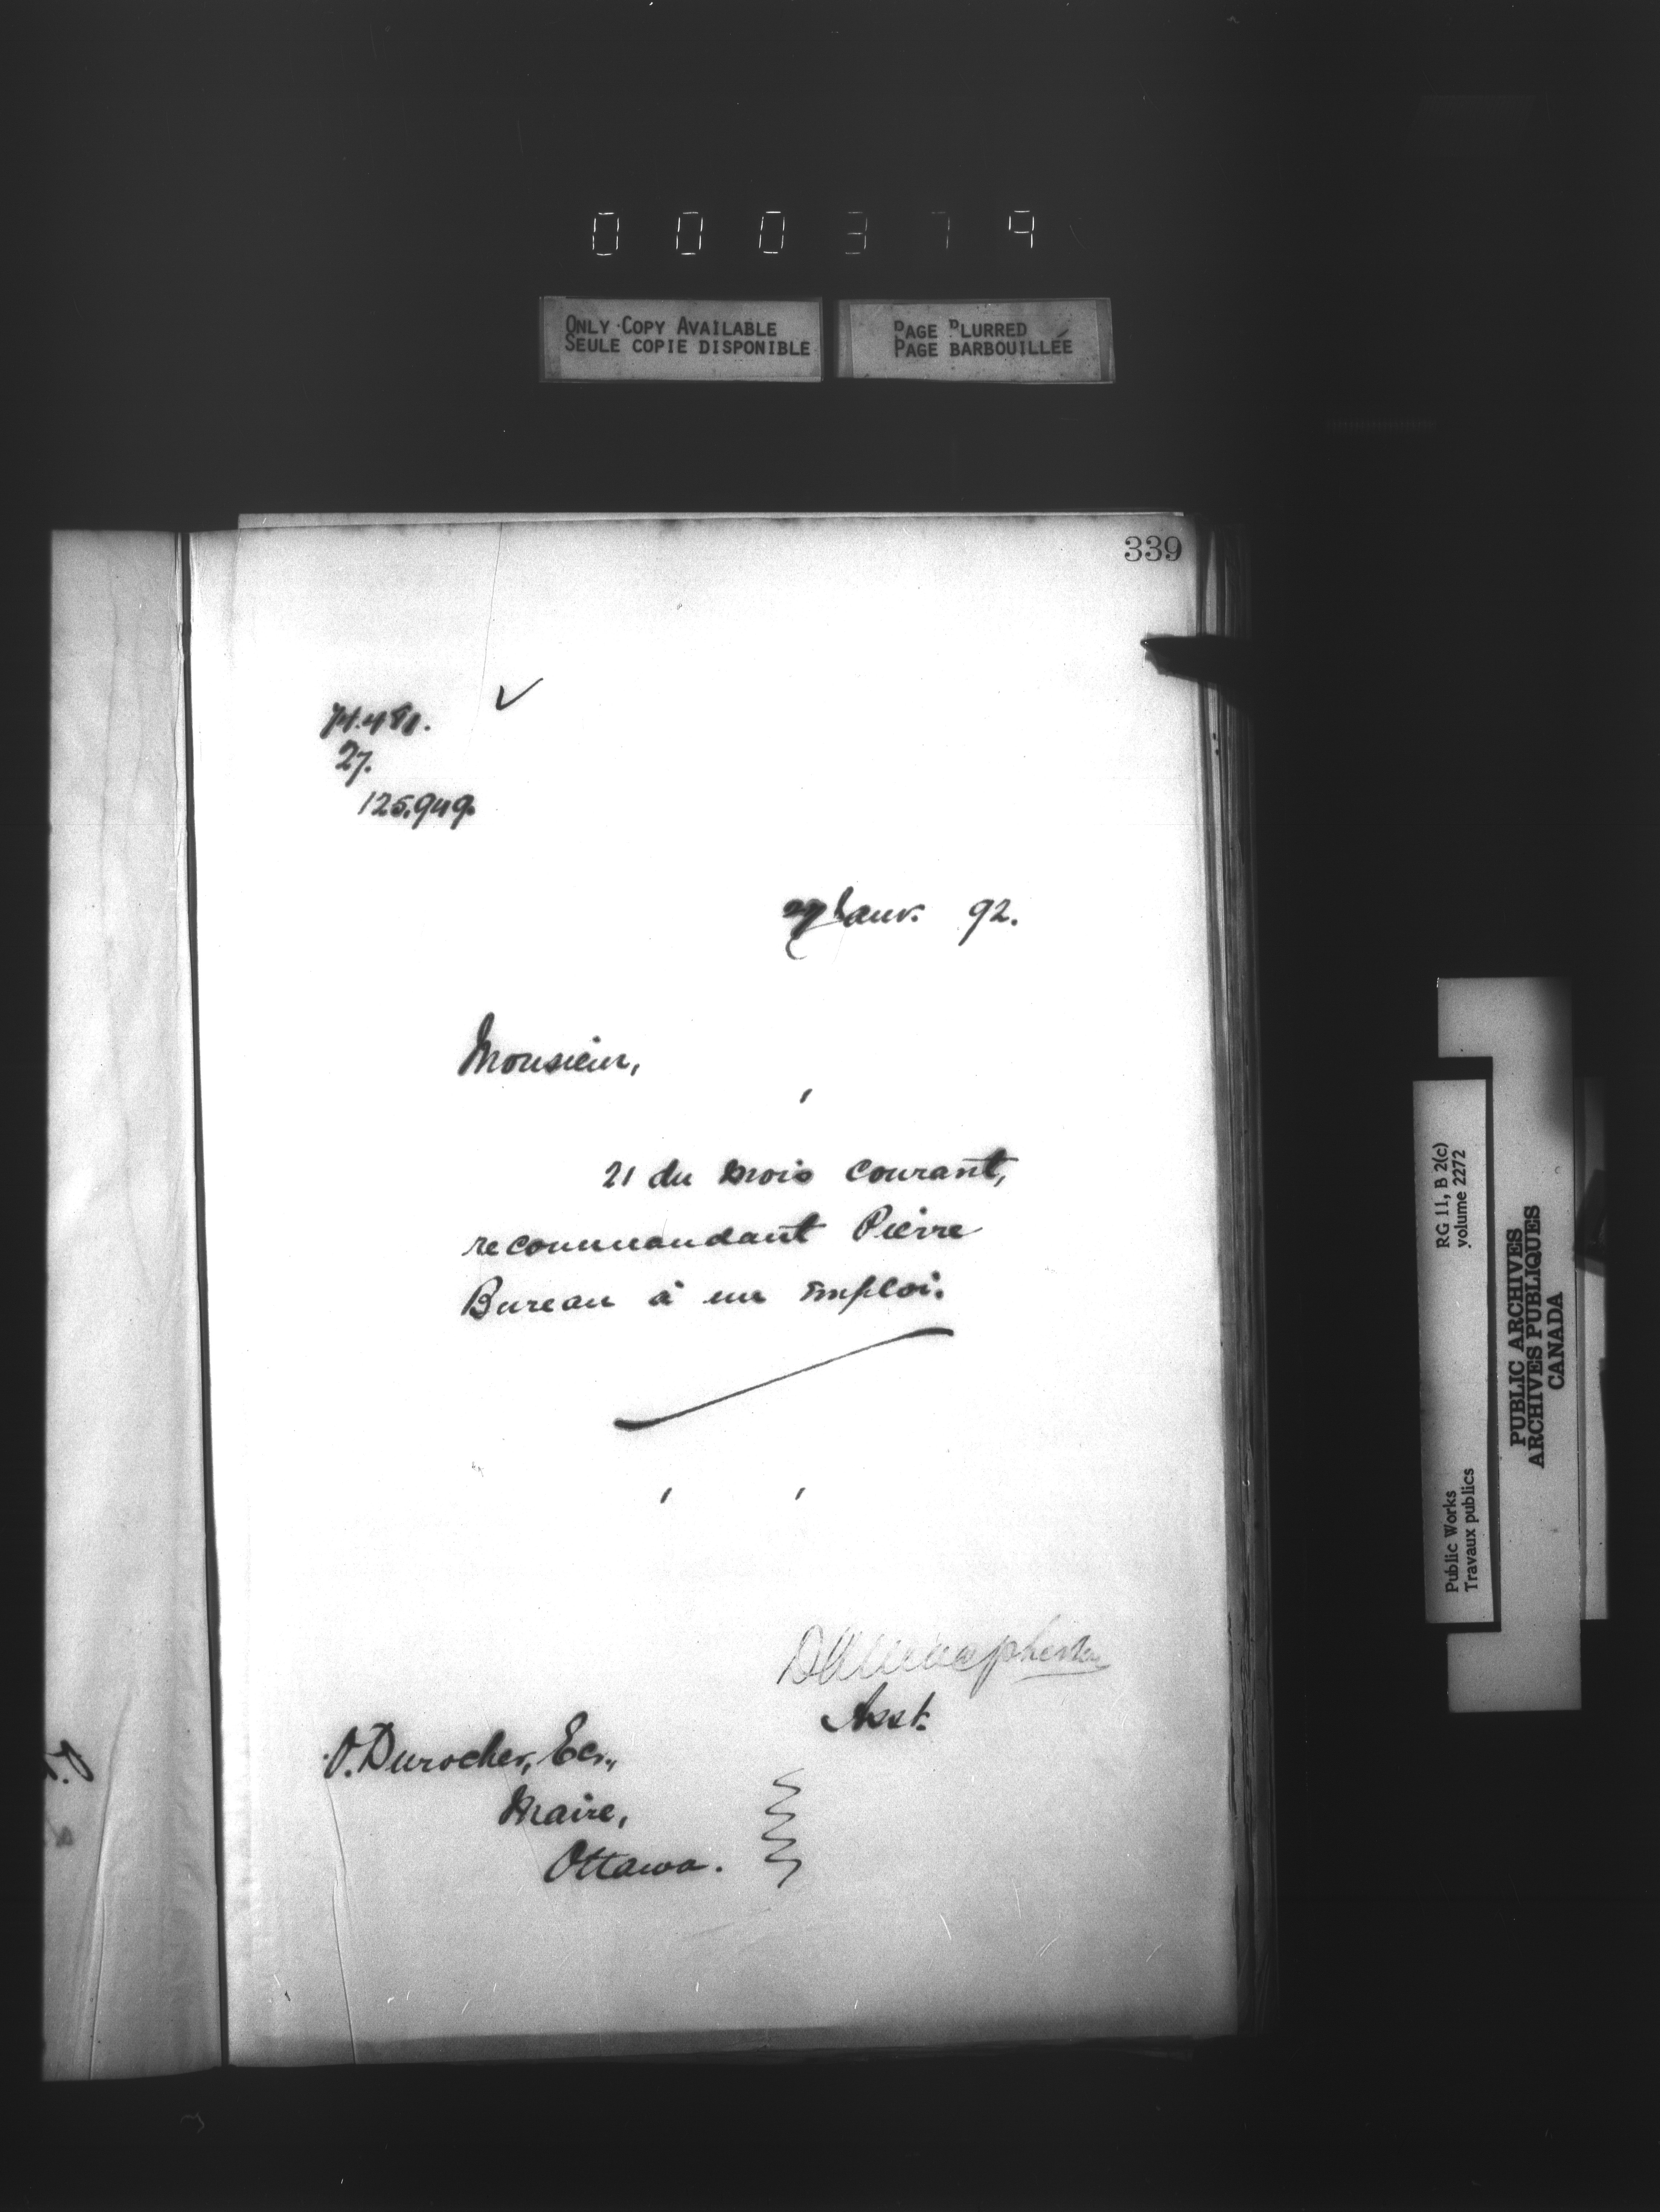 000379
ONLY COPY AVAILABLE
SEULE COPIE DISPONIBLE
PAGE BLURRED
PAGE BARBOUILLÉE
339
74.481.
27.
125.949.
27 Janv. 92.
Monsieur,
21 du mois courant,
recommandant Pierre
Bureau à un emploi.
Asst.
O. Durocher, Ecr.,
Maire,
Ottawa.
RG 11, B 2(c)
volume 2272
Public Works
Travaux publics
PUBLIC ARCHIVES
ARCHIVES PUBLIQUES
CANADA